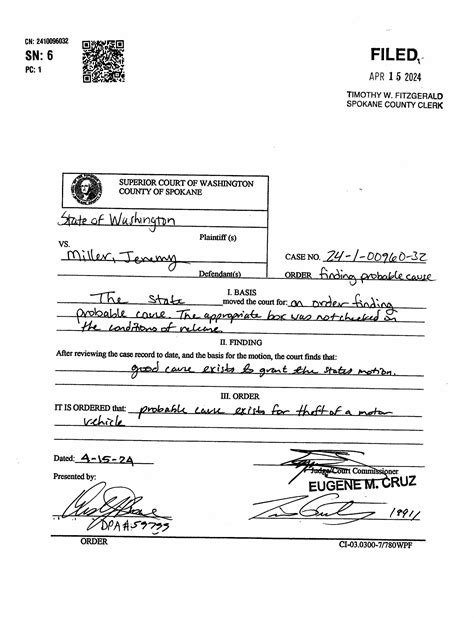 CN: 2410096032
SN: 6
PC: 1
FILED
APR 15 2024
TIMOTHY W. FITZGERALD
SPOKANE COUNTY CLERK
SUPERIOR COURT OF WASHINGTON
COUNTY OF SPOKANE
State of Washington
Plaintiff (s)
VS.
Miller, Jeremy
Defendant(s)
CASE NO. 24-1-00960-32
ORDER finding probable cause
I. BASIS
The State moved the court for: an order finding
probable cause. The appropriate box was not checked on
the conditions of release.
II. FINDING
After reviewing the case record to date, and the basis for the motion, the court finds that:
good cause exists to grant the states motion.
III. ORDER
IT IS ORDERED that: probable cause exists for theft of a motor
vehicle
Dated: 4-15-24
Judge/Court Commissioner
EUGENE M. CRUZ
Presented by:
DPA# 59799
ORDER
CI-03.0300-7/780WPF